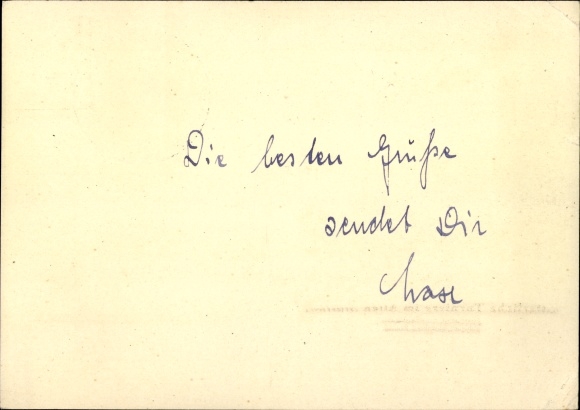 Die besten Grüße
sendet Dir